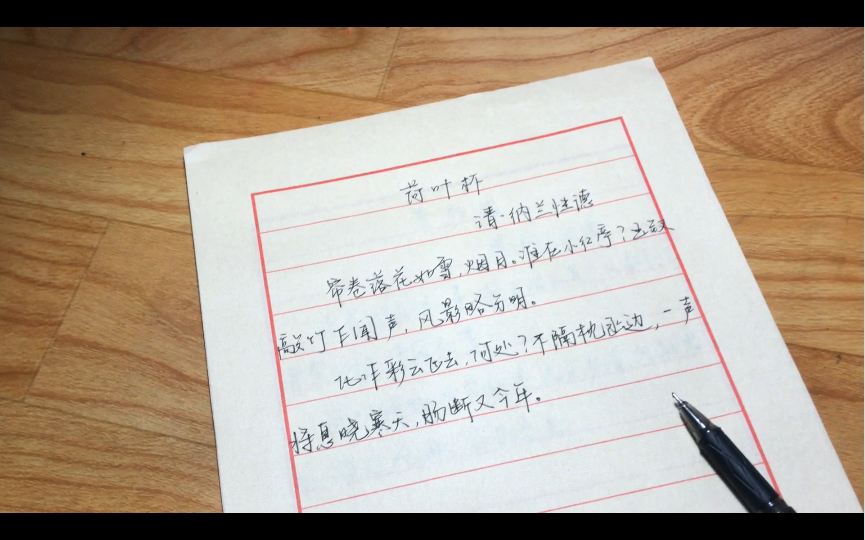 荷叶杯
清·纳兰性德
帘卷落花如雪,烟月。谁在小红亭?玉钗
敲竹乍闻声,风影略分明。
化作彩云飞去,何处?不隔枕函边,一声
将息晓寒天,肠断又今年。